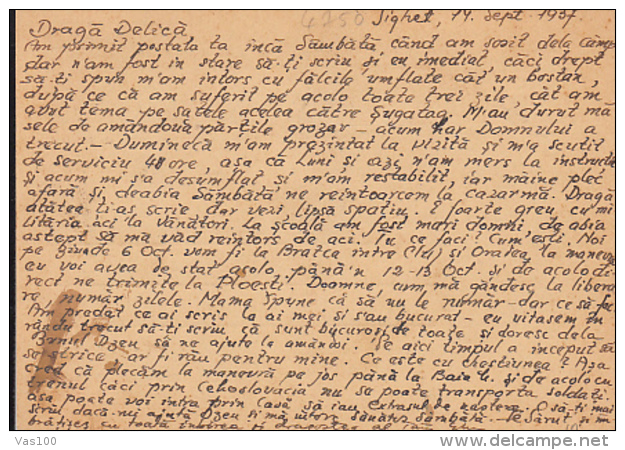 4250 Sighet, 14. Sept. 1937
Dragă Delică,
Am primit postala ta încă Sâmbătă când am sosit dela câmp
dar n'am fost in stare să-ți scriu și eu imediat căci drept
să-ți spun m'am intors cu fălcile umflate cât un bostan,
după ce că am suferit pe acolo toate trei zile cât am
avut tema pe satele acelea către Șugatag. M'au durut mă
sele de amândouă părțile grozav – acum har Domnului a
trecut. – Duminecă m'am prezintat la vizită și m'a scutit
de serviciu 48 ore, așa că Luni și azi n'am mers la instrucție
și acum mi s'a desumflat și m'am restabilit, iar mâine plec
afară și deabia Sâmbătă ne reintoarcem la cazarmă. Dragă
atâtea ți-aș scrie dar vezi lipsă spațiu. E foarte greu cu mi
lităria aci la Vânători. La școală am fost mari domni, de abia
aștept să mă văd reintors de aci. Tu ce faci? Cum ești. Noi
pe ziua de 6 Oct. vom fi la Bratca intre Cluj și Oradea la manevre
eu voi avea de stat acolo până'n 12-13 Oct. și de acolo di-
rect ne trimite la Ploești. Doamne, cum mă gândesc la libera
re, număr zilele. Mama spune că să nu le număr – dar ce să fac
Am predat ce ai scris la ai mei și s'au bucurat – eu uitasem in
rândul trecut să-ți scriu că sunt bucuroși de toate și doresc dela
Bunul Dzeu să ne ajute la amândoi. Pe aici timpul a inceput să
se strice, ar fi rău pentru mine. Ce este cu chestiunea? Așa
cred că plecăm la manevră pe jos până la Baia M. și de acolo cu
trenul căci prin Cehoslovacia nu se poate transporta soldați.
așa poate voi intra prin Casă să iau extrasul de naștere. O să-ți mai
scriu dacă-mi ajută Dzeu și mă intorc sănătos Sâmbătă. – Te sărut și im
brățișez cu toată iubirea și dragostea al tău
Vas100
© www.delcampe.net